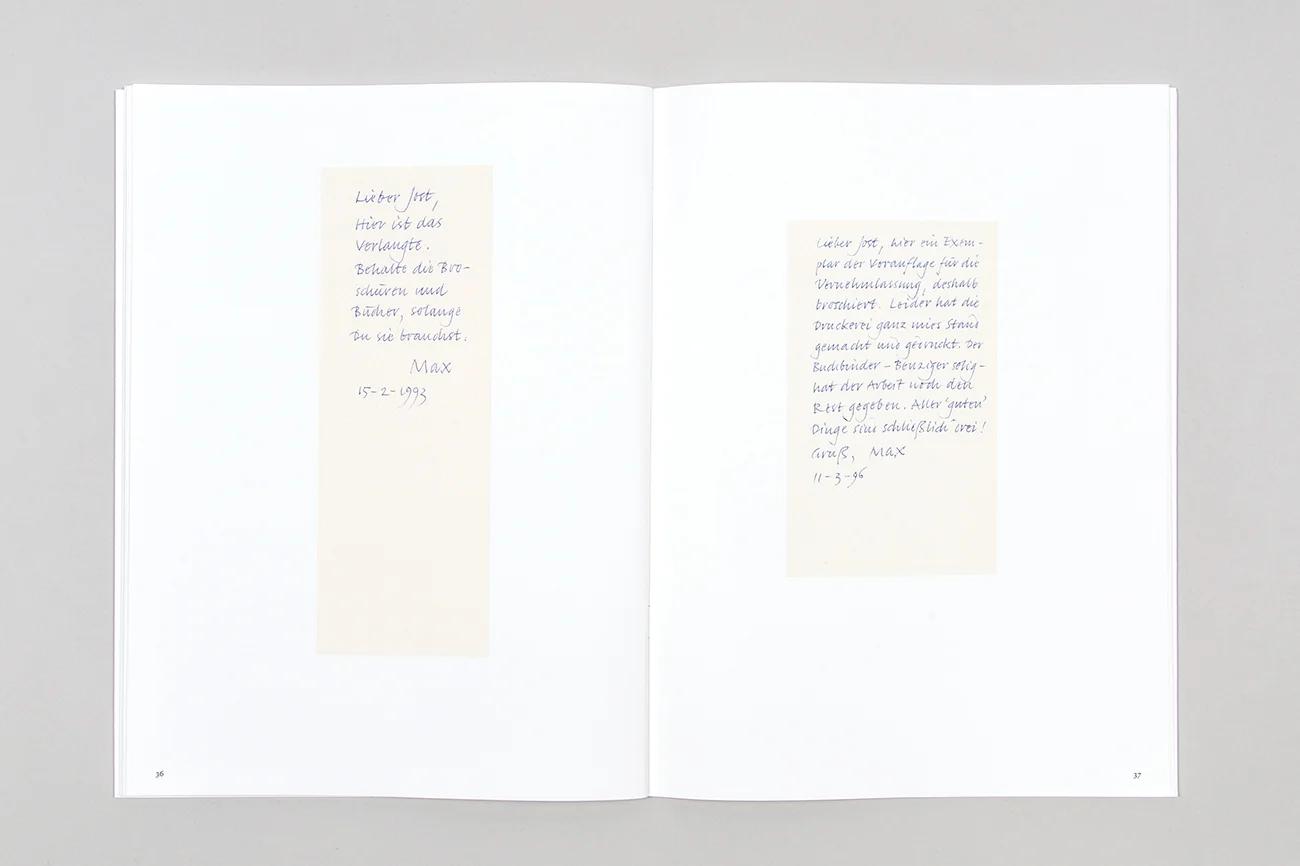 Lieber Jost,
Hier ist das
Verlangte.
Behalte die Bro-
schüren und
Bücher, solange
Du sie brauchst.
Max
15-2-1993
36
Lieber Jost, hier ein Exem-
plar der Vorauflage für die
Vernehmlassung, deshalb
broschiert. Leider hat die
Druckerei ganz mies Stand
gemacht und gedruckt. Der
Buchbinder – Benziger selig –
hat der Arbeit noch den
Rest gegeben. Aller 'guten'
Dinge sind schließlich drei!
Gruß, Max
11-3-96
37